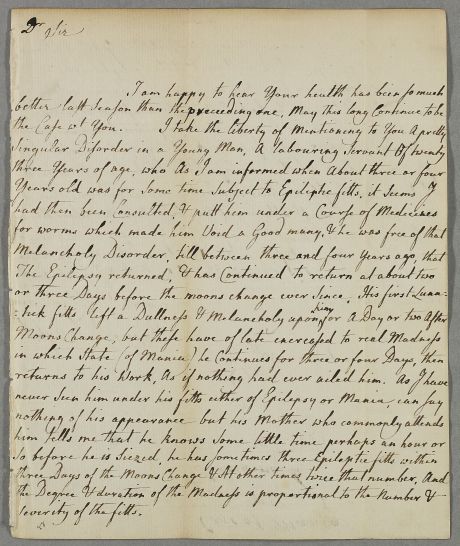 Dr Sir
I am happy to hear Your health has been so much
better last Season than the preceeding one, May this long Continue to be
the Case wt You. I take the liberty of Mentioning to You A pretty
Singular Disorder in a Young Man, A labouring Servant of twenty
three Years of age, who As I am informed when About three or four
Years old was for Some time Subject to Epileptic fitts, it Seems I
had then been Consulted, & putt him under a Course of Medicines
for worms which made him Void a Good many, & he was free of that
Melancholy Disorder, till between three and four Years ago, that
The Epilepsy returned, & has Continued to return at about two
or three Days before the moons change ever Since. His first Luna-
-tick fitts left a Dullness & Melancholy upon him for A Day or two After
Moons Change, but these have of late encreased to real Madness
in which State (of Mania) he Continues for three or four Days, then
returns to his Work, As if nothing had ever ailed him. As I have
never Seen him under his fitts either of Epilepsy or Mania, can say
nothing of his appearance but his Mother who commonly attends
him tells me that he knows Some little time perhaps an hour or
So before he is Seized, he has Sometimes three Epileptic fitts within
three Days of the Moons Change & At other times twice that number, And
the Degree & duration of the Madness is proportional to the Number &
Severity of the fitts.